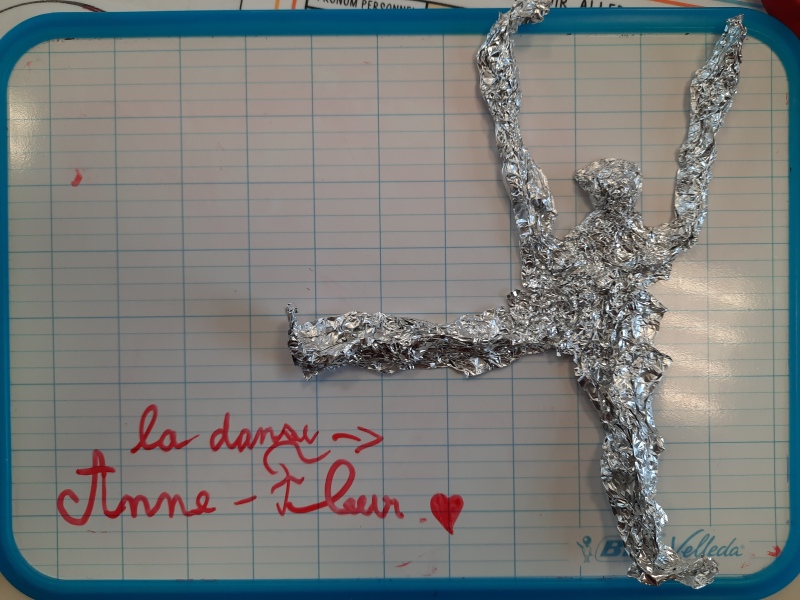 PRONOM PERSONNEL
ALLER
la danse →
Anne-Fleur ♥
Velleda